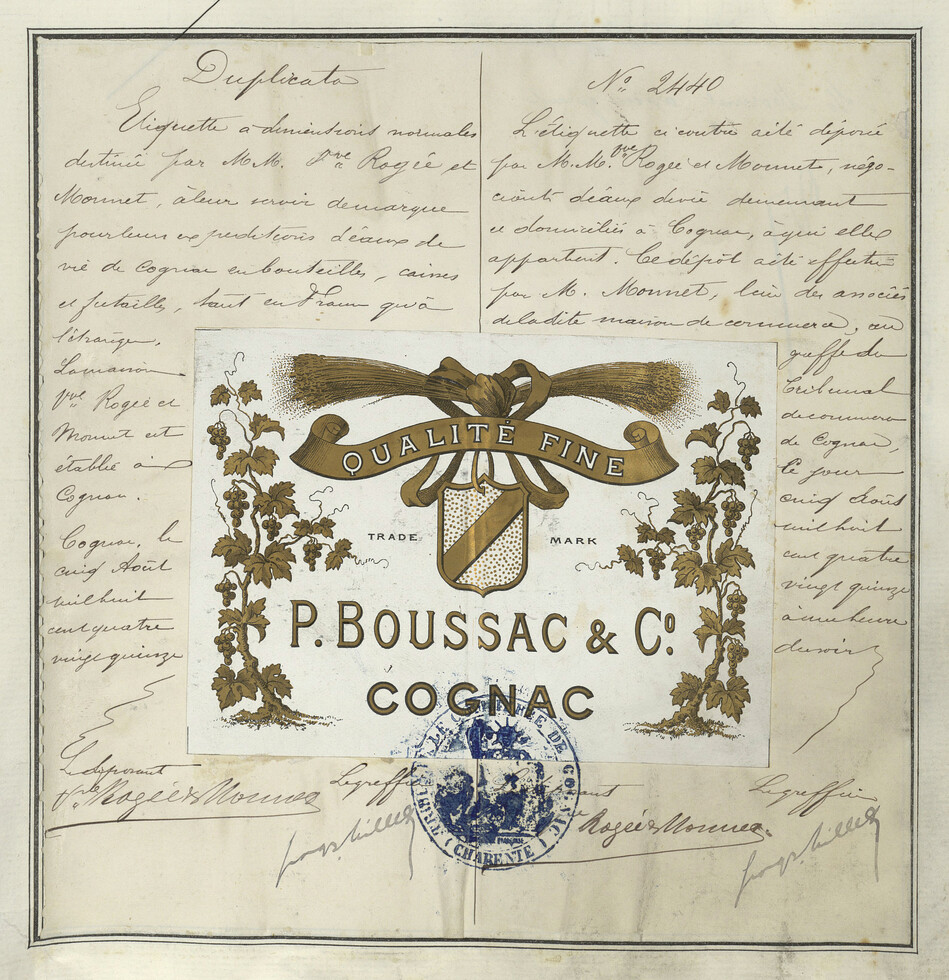 Duplicata
Etiquette à dimensions normales
destinée par M.M. Vve Rogée et
Monnet, à leur servir de marque
pour leurs expéditions d'eaux de
vie de Cognac en bouteilles, caisses
et futailles, tant en France qu'à
l'étranger.
La maison
Vve Rogée et
Monnet est
établie à
Cognac.
Cognac, le
cinq Août
mil huit
cent quatre
vingt quinze
Le déposant
Vve Rogée & Monnet
Le greffier
No. 2440
L'étiquette ci contre a été déposée
par M.M. Vve Rogée et Monnet, négo-
ciants d'eaux de vie demeurant
et domiciliés à Cognac, à qui elle
appartient. Ce dépôt a été effectué
par M. Monnet, l'un des associés
de la dite maison de commerce, au
greffe du
Tribunal
de commerce
de Cognac,
le jour
cinq Août
mil huit
cent quatre
vingt quinze
à une heure
du soir
Le déposant
Rogée & Monnet
Le greffier
QUALITÉ FINE
TRADE MARK
P. BOUSSAC & Co.
COGNAC
DE COGNAC
(CHARENTE)